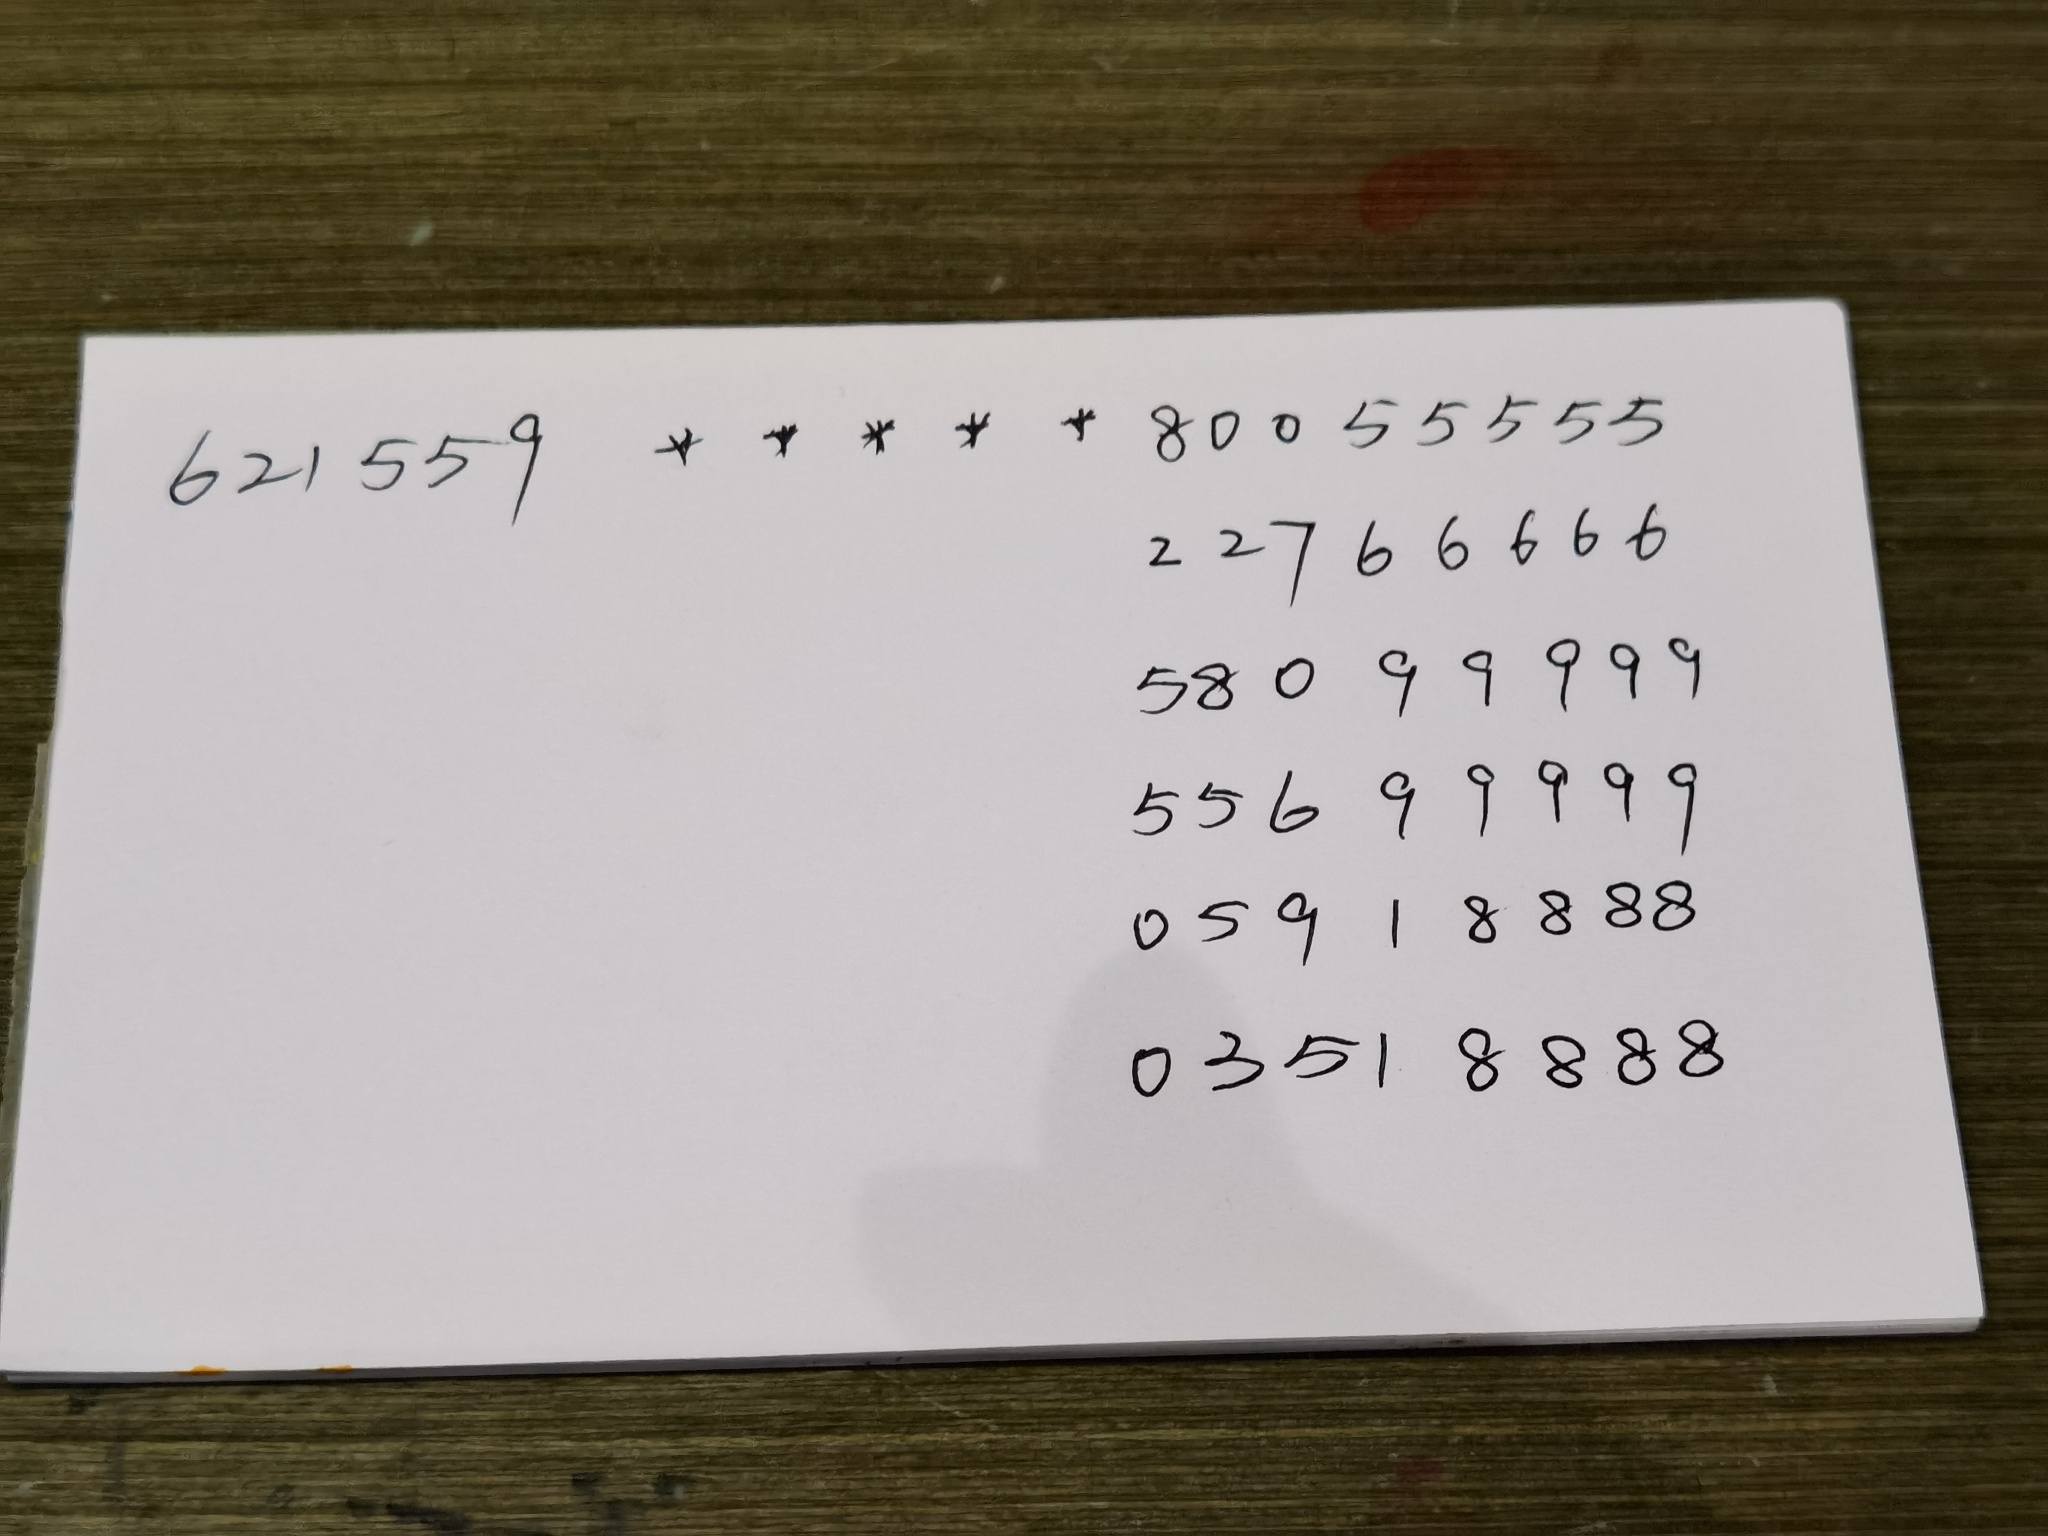 621559 * * * * * 80055555
22766666
58099999
55699999
05918888
03518888